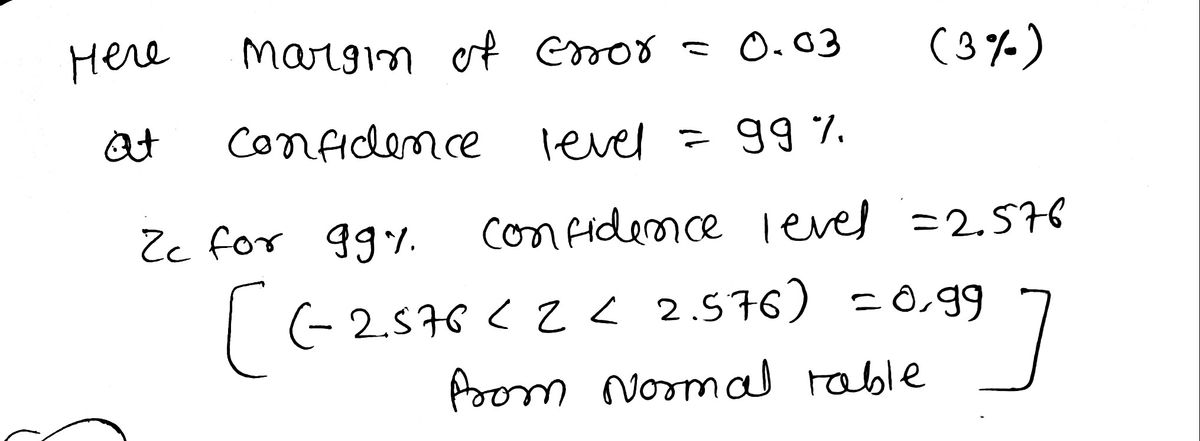 Here margin of Error = 0.03 (3%)
at confidence level = 99%.
Zc for 99%. confidence level = 2.576
[(-2.576 < Z < 2.576) = 0.99]
from Normal table